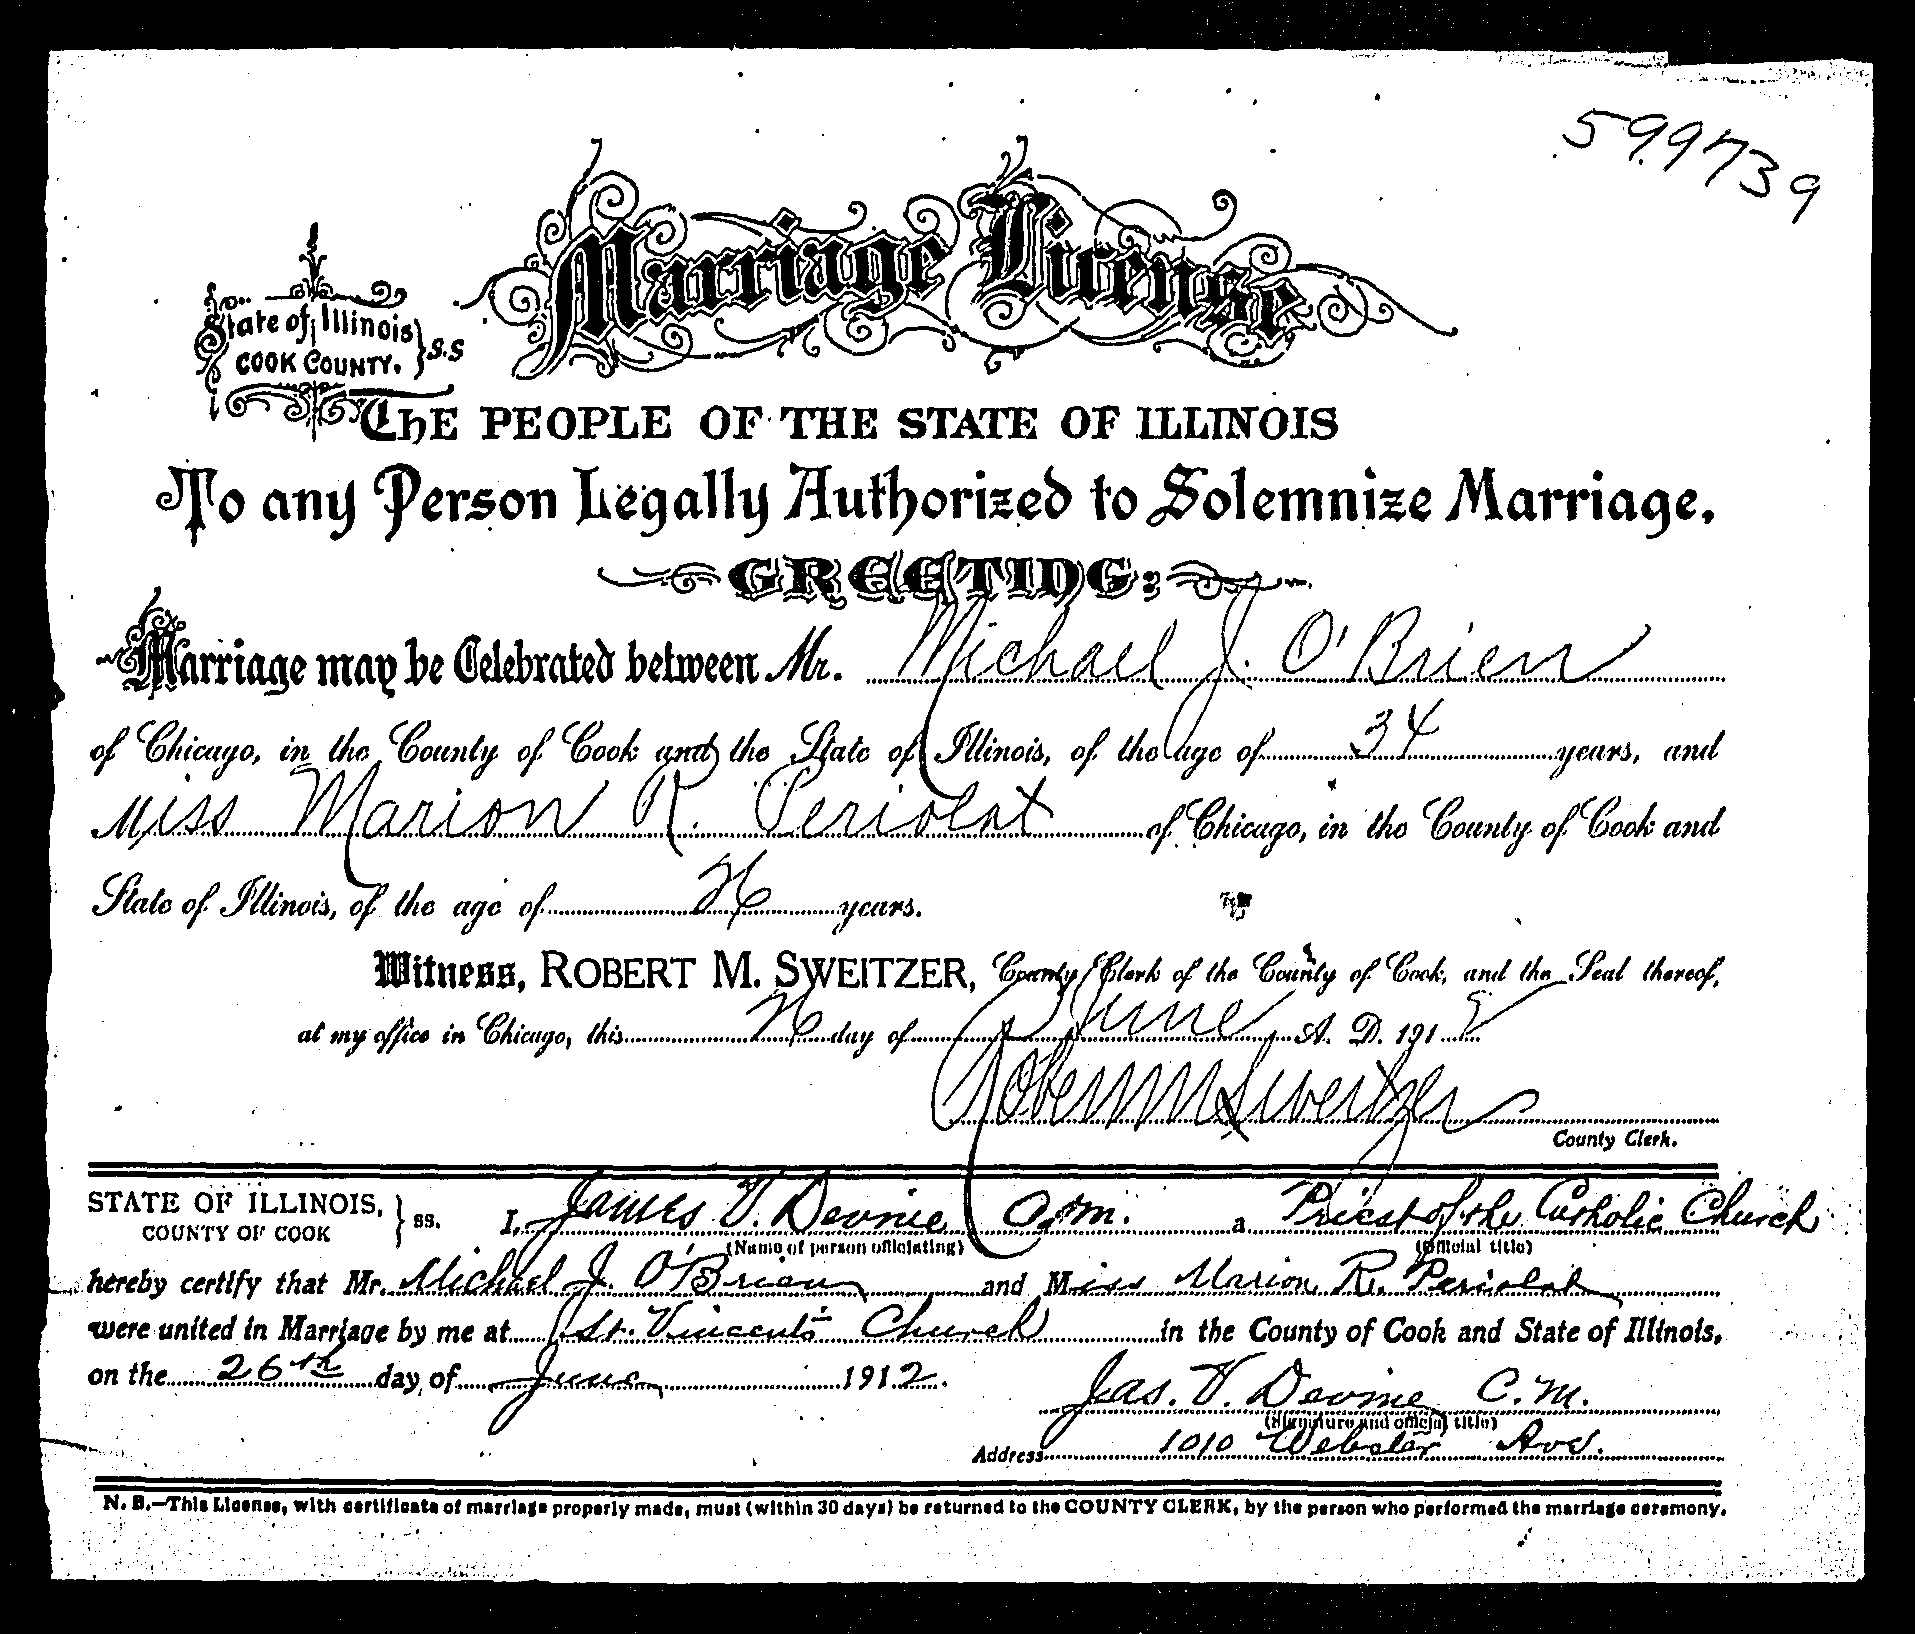 599739
Marriage License
State of Illinois
COOK COUNTY. } S.S
THE PEOPLE OF THE STATE OF ILLINOIS
To any Person Legally Authorized to Solemnize Marriage.
GREETING:
Marriage may be Celebrated between Mr. Michael J. O'Brien
of Chicago, in the County of Cook and the State of Illinois, of the age of 34 years, and
Miss Marion R. Periolat of Chicago, in the County of Cook and
State of Illinois, of the age of 26 years.
Witness, ROBERT M. SWEITZER, County Clerk of the County of Cook, and the Seal thereof,
at my office in Chicago, this 26 day of June A. D. 191
Robert M Sweitzer
County Clerk.
STATE OF ILLINOIS,
COUNTY OF COOK } ss. I, James V. Devine C.M. a Priest of the Catholic Church
(Name of person officiating) (Official title)
hereby certify that Mr. Michael J. O'Brien and Miss Marion R. Periolat
were united in Marriage by me at St. Vincent's Church in the County of Cook and State of Illinois,
on the 26th day of June 1912.
Jas. V. Devine C.M.
(Signature and official title)
Address 1010 Webster Ave.
N. B.—This License, with certificate of marriage properly made, must (within 30 days) be returned to the COUNTY CLERK, by the person who performed the marriage ceremony.